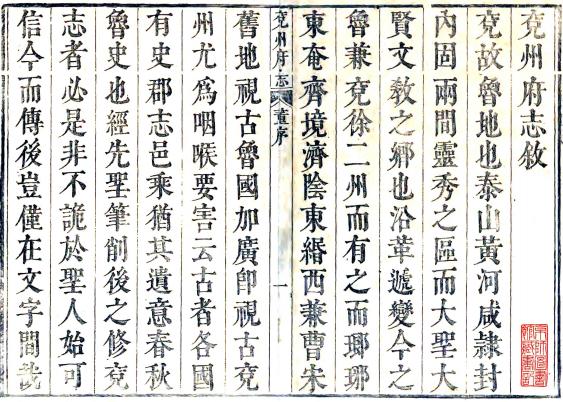 兗州府志敘
兗故魯地也泰山黃河咸隷封
內固兩間靈秀之區而大聖大
賢文敎之鄉也沿革遞變今之
魯兼兗徐二州而有之而瑯琊
東奄齊境濟陰東緡西兼曹宋
兗州府志 董序 一
舊地視古魯國加廣卽視古兗
州尤爲咽喉要害云古者各國
有史郡志邑乘猶其遺意春秋
魯史也經先聖筆削後之修兗
志者必是非不詭於聖人始可
信今而傳後豈僅在文字間哉